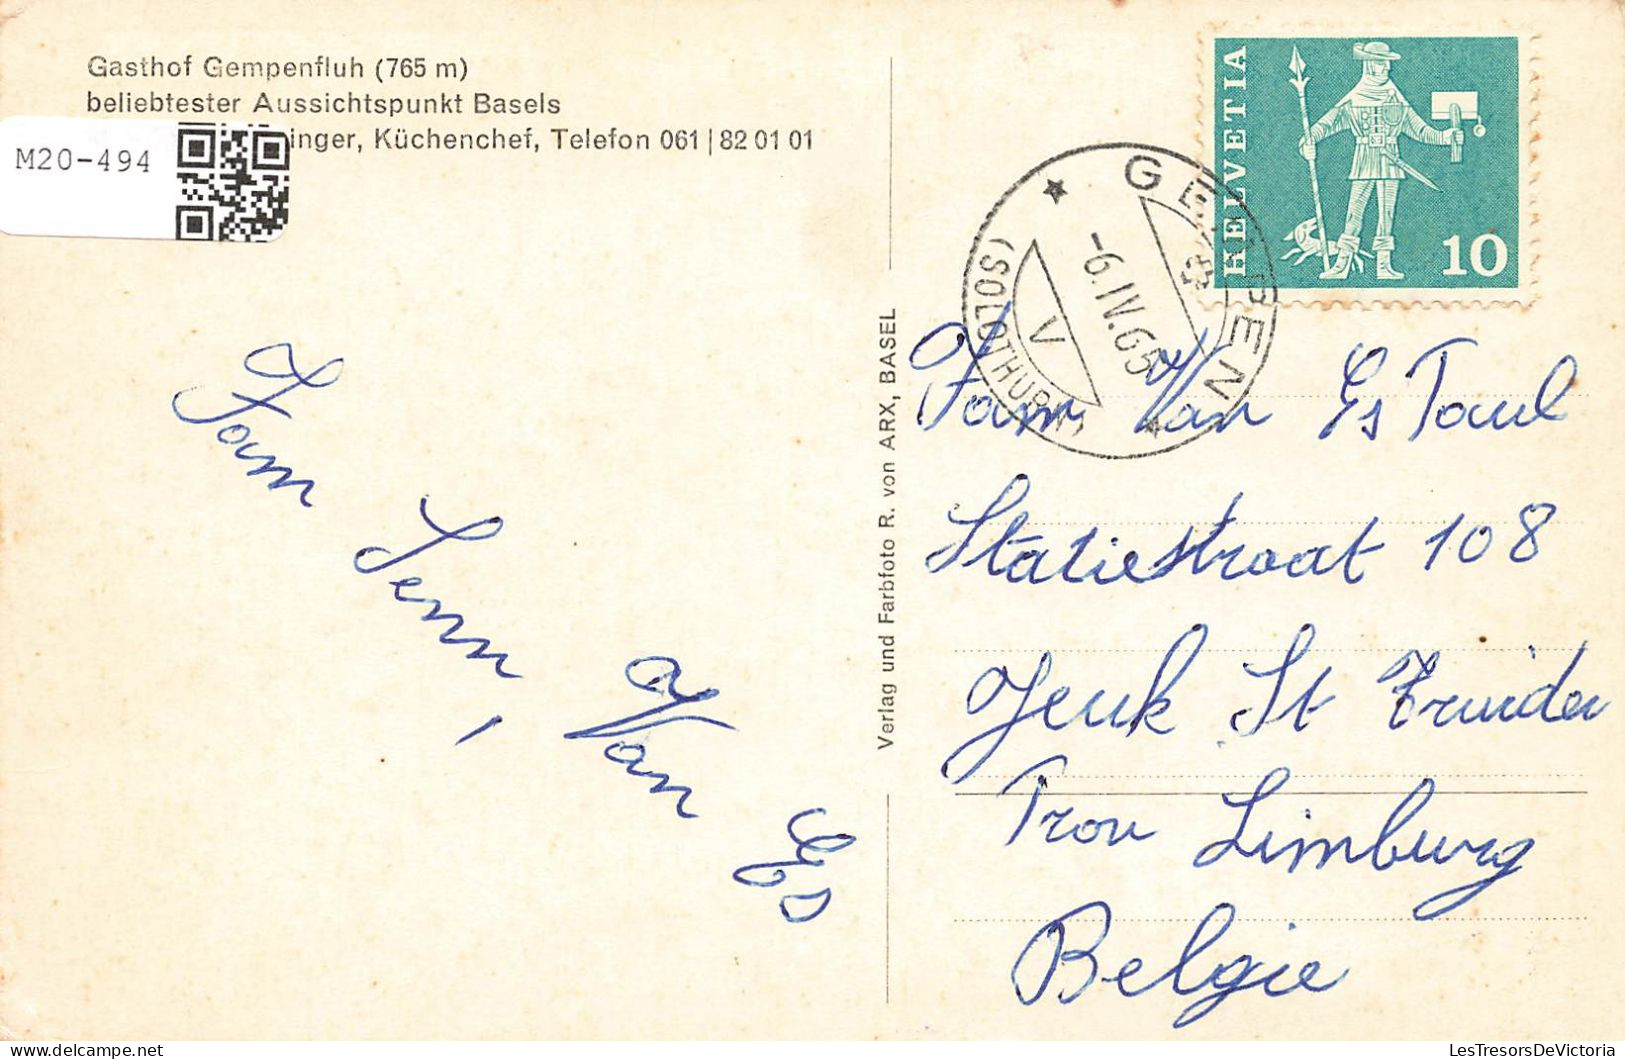 Gasthof Gempenfluh (765 m)
beliebtester Aussichtspunkt Basels
inger, Küchenchef, Telefon 061 | 82 01 01
M20-494
HELVETIA
10
GEMPEN
-6.IV.65
V
(SOLOTHURN)
Verlag und Farbfoto R. von ARX, BASEL
Fam Senn,
Van Es
Fam, Van Es Paul
Statiestraat 108
Jeuk St Truiden
Prov Limburg
Belgie
LesTresorsDeVictoria